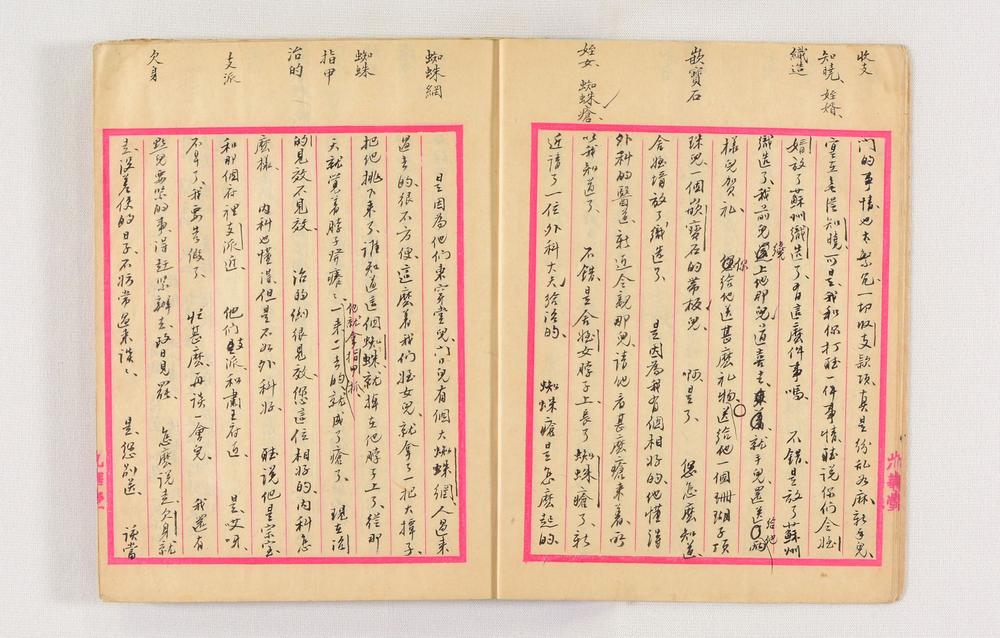 收支
知曉 姪婿
織造
嵌寶石
姪女 蜘蛛瘡
門的事情也太繁冗一切收支款項真是紛亂如麻新手兒
宜且是從知曉可是我和你打聽一件事情聽說你們令姪
婿放了蘇州織造了可有這麼件事嗎 不錯是放了蘇州
織造了我前兒纔上他那兒道喜去來着就手兒還送給他兩
樣兒賀礼 你給他送甚麼礼物 送給他一個珊瑚子頂
珠兒一個嵌寶石的帶板兒 啊是了 您怎麼知道
令姪婿放了織造了 是因為我有個相好的他懂得
外科的醫道新近令親那兒請他看甚麼瘡來着所
以我知道了 不錯是舍姪女脖子上長了蜘蛛瘡了新
近請了一位外科大夫給治的 蜘蛛瘡是怎麼起的
蜘蛛網
蜘蛛
指甲
治的
支派
欠身
是因為他們東穿堂兒門口兒有個大蜘蛛網人過來
過去的很不方便這麼着我們姪女兒就拿了一把大撢子
把他挑下來了誰知道這個蜘蛛就掉在他脖子上了從那
天就覺着脖子痒痒他就拿指甲抓一來二去的就成了瘡了 現在治
的見效不見效 治的倒很見效您這位相好的內科怎
麼樣 內科也懂得但是不如外科好 聽說他是宗室
和那個府裡支派近 他們支派和肅王府近 是哎呀
不早了我要告假了 忙甚麼再談一會兒 我還有
點兒要緊的事得赶緊辦去改日見罷 怎麼說走欠身就
走沒差使的日子不妨常過來談談 是您別送 該當
九華堂